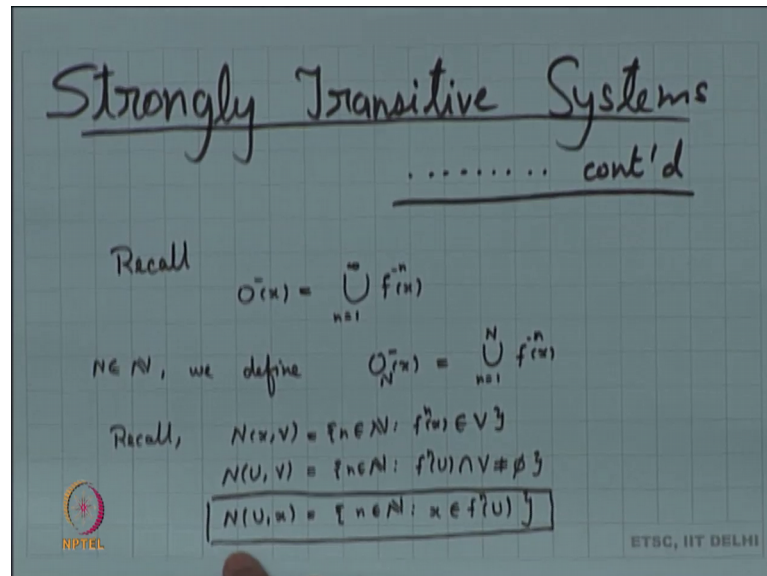 Strongly Transitive Systems
......... cont'd
Recall
O⁻(x) = ⋃_{n=1}^{∞} f⁻ⁿ(x)
N ∈ ℕ, we define O_N⁻(x) = ⋃_{n=1}^{N} f⁻ⁿ(x)
Recall, N(x,V) = {n ∈ ℕ : fⁿ(x) ∈ V}
N(U,V) = {n ∈ ℕ : fⁿ(U) ∩ V ≠ ∅}
N(U,x) = {n ∈ ℕ : x ∈ fⁿ(U)}
NPTEL
ETSC, IIT DELHI